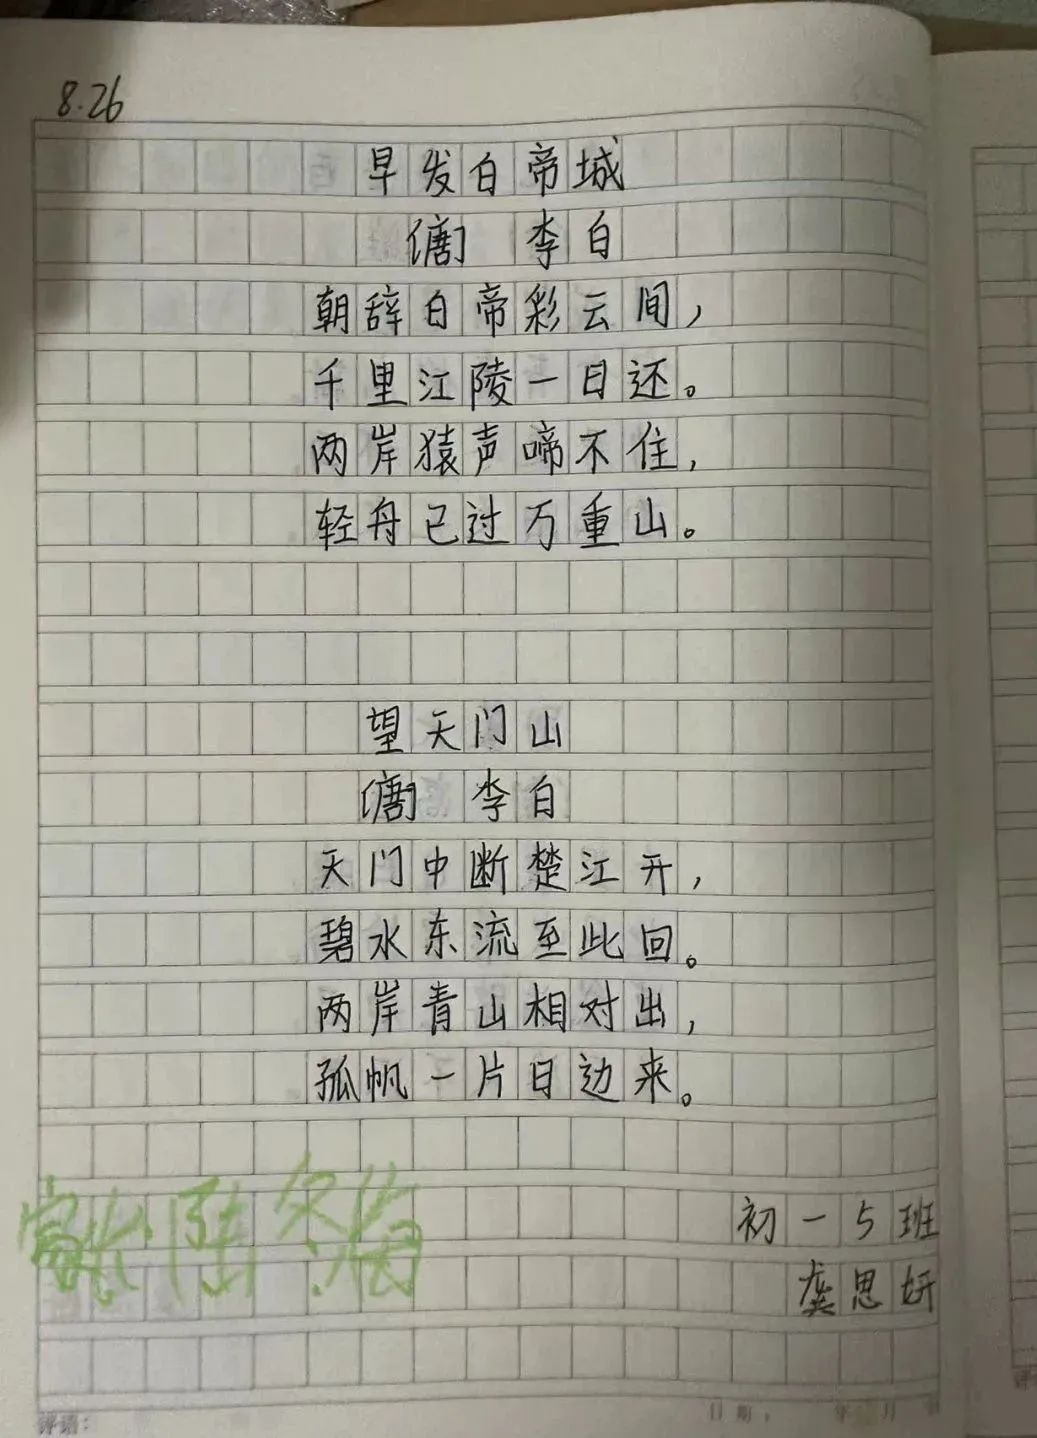 8.26
早发白帝城
[唐] 李白
朝辞白帝彩云间，
千里江陵一日还。
两岸猿声啼不住，
轻舟已过万重山。
望天门山
[唐] 李白
天门中断楚江开，
碧水东流至此回。
两岸青山相对出，
孤帆一片日边来。
初一5班
龚思妍
家长
评语：
日期： 年 月 日